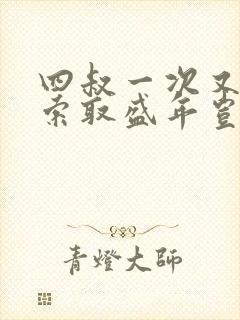 四叔一次又
索取盛年岂
青燈大師